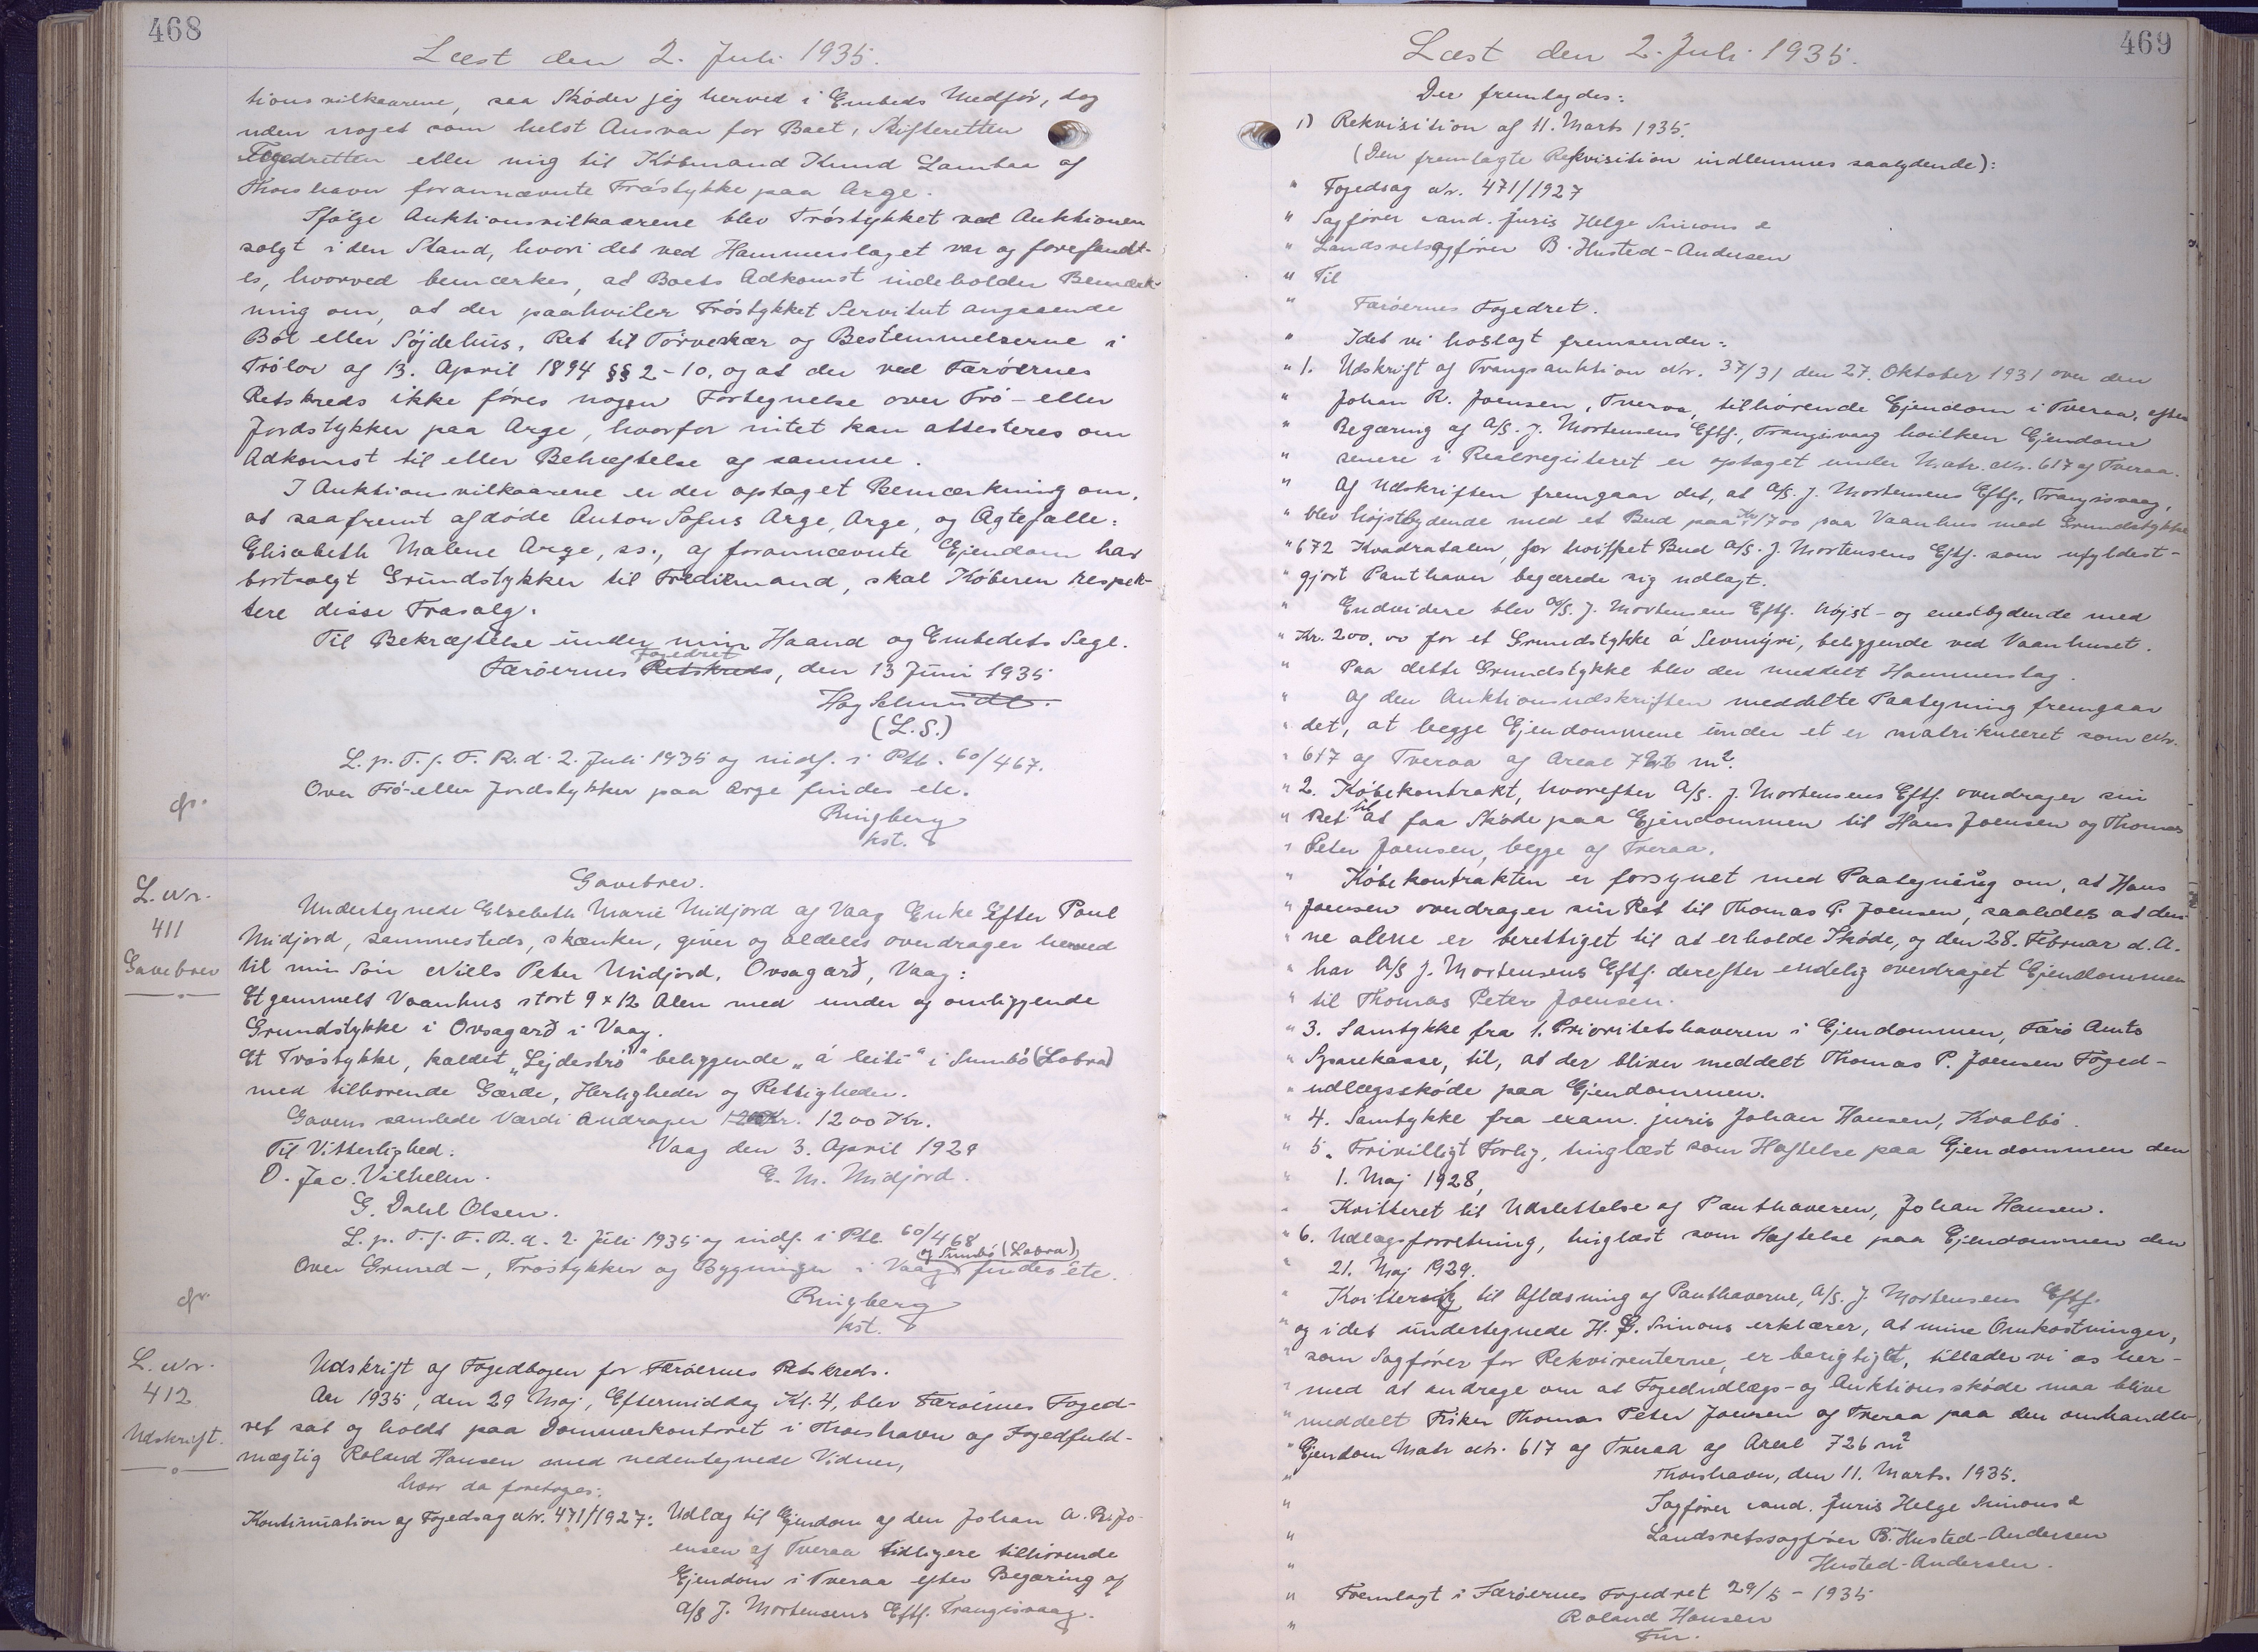 468
Læst den 2. Juli 1935.
tionsvilkaarene, saa Skøder jeg herved i Embeds Medför, dog
uden noget som helst Ansvar for Boet, Skifteretten
Fogedretten eller mig til Købmand Knud Lambaa af
Thorshavn forannævnte Tröstykke paa Arge.
Ifølge Auktionsvilkaarene blev Tröstykket ved Auktionen
solgt i den Stand, hvori det ved Hammerslaget var og forefandt-
es, hvorved bemærkes, at Boets Adkomst indeholder Bemærk-
ning om, at der paahviler Tröstykket Servitut angaaende
Ból eller Söjdehús, Ret til Törveskær og Bestemmelserne i
Trölov af 13. April 1894 §§ 2-10, og at der ved Færøernes
Retskreds ikke føres nogen Fortegnelse over Trö- eller
Jordstykker paa Arge, hvorfor intet kan attesteres om
Adkomst til eller Behæftelse af samme.
I Auktionsvilkaarene er der optaget Bemærkning om,
at saafremt afdøde Anton Sofus Arge, Arge, og Ægtefælle:
Elisabeth Malene Arge, ss., af forannævnte Ejendom har
bortsolgt Grundstykker til Tredjemand, skal Køberen respek-
tere disse Frasalg.
Til Bekræftelse under min Haand og Embedets Segl.
Færøernes Retskreds Fogedret, den 13 Juni 1935
Hag Schmidt.
(L.S.)
L. p. T. f. F. R. d. 2. Juli 1935 og indf. i Ptb. 60/467.
Over Trö- eller Jordstykker paa Arge findes etc.
Ringberg
kst.
L. Nr.
411
Gavebrev
Gavebrev.
Undertegnede Elsebeth Marie Midjord af Vaag Enke efter Poul
Midjord, sammesteds, skænker, giver og aldeles overdrager herved
til min Sön Niels Peter Midjord, Ovsagarð, Vaag:
Et gammelt Vaanhus stort 9 x 12 Alen med under og omliggende
Grundstykke i Ovsagarð i Vaag.
Et Tröstykke, kaldet "Lejdeströ" beliggende "á leiti" i Sumbö (Lobra)
med tilhørende Gærde, Herligheder og Rettigheder.
Gavens samlede Værdi andrager 1200 Kr.
Til Vitterlighed:
Vaag den 3. April 1929
O. Jac. Vilhelm.
E. M. Midjord.
G. Dahl Olsen.
L. p. T. f. F. R. d. 2. Juli 1935 og indf. i Ptb. 60/468
Over Grund-, Tröstykker og Bygninger i Vaag og Sumbö (Lobra) findes etc.
Ringberg
kst.
L. Nr.
412
Udskrift.
Udskrift af Fogedbogen for Færøernes Retskreds.
Aar 1935, den 29 Maj, Eftermiddag Kl. 4, blev Færøernes Foged-
ret sat og holdt paa Dommerkontoret i Thorshavn af Fogedfuld-
mægtig Roland Hansen med nedentegnede Vidner,
hvor da foretoges:
Kontinuation af Fogedsag Nr. 471/1927: Udlæg til Ejendom af den Johan A. R. Jo-
ensen af Tveraa tidligere tilhørende
Ejendom i Tveraa efter Begæring af
A/S J. Mortensens Eftf. Trangisvaag.
469
Læst den 2. Juli 1935.
Der fremlagdes:
1) Rekvisition af 11. Marts 1935.
(Den fremlagte Rekvisition indlemmes saalydende):
" Fogedsag Nr. 471/1927
" Sagfører cand. juris Helge Simonse
" Landsretssagfører B. Husted-Andersen
" Til
" Færöernes Fogedret.
" Idet vi hoslagt fremsender:
" 1. Udskrift af Tvangsauktion Nr. 37/31 den 27. Oktober 1931 over den
" Johan R. Joensen, Tveraa, tilhørende Ejendom i Tveraa, efter
" Begæring af A/S. J. Mortensens Eftf., Trangisvaag hvilken Ejendom
" senere i Realregisteret er optaget under Matr. Nr. 617 af Tveraa.
" Af Udskriften fremgaar det, at A/S. J. Mortensens Eftf., Trangisvaag,
" blev højstbydende med et Bud paa Kr. 1700 paa Vaanhus med Grundstykke
" 672 Kvadratalen, for hvilket Bud A/S. J. Mortensens Eftf. som ufyldest-
" gjort Panthaver begærede sig udlagt.
" Endvidere blev A/S. J. Mortensens Eftf. højst- og enestbydende med
" Kr. 200.00 for et Grundstykke á Sevmýri, beliggende ved Vaanhuset.
" Paa dette Grundstykke blev der meddelt Hammerslag.
" Af den Auktionsudskriften meddelte Paategning fremgaar
" det, at begge Ejendommene under et er matrikuleret som Nr.
" 617 af Tveraa af Areal 726 m².
" 2. Købekontrakt, hvorefter A/S. J. Mortensens Eftf. overdrager sin
" Ret til at faa Skøde paa Ejendommen til Hans Joensen og Thomas
" Peter Joensen, begge af Tveraa.
" Købekontrakten er forsynet med Paategning om, at Hans
" Joensen overdrager sin Ret til Thomas P. Joensen, saaledes at den-
" ne alene er berettiget til at erholde Skøde, og den 28. Februar d. A.
" har A/S J. Mortensens Eftf. derefter endelig overdraget Ejendommen
" til Thomas Peter Joensen.
" 3. Samtykke fra 1. Prioritetshaveren i Ejendommen, Færö Amts
" Sparekasse, til, at der bliver meddelt Thomas P. Joensen Foged-
" udlægsskøde paa Ejendommen.
" 4. Samtykke fra exam. juris Johan Hansen, Kvalbö.
" 5. Frivilligt Forlig, tinglæst som Hæftelse paa Ejendommen den
" 1. Maj 1928,
" Kvitteret til Udslettelse af Panthaveren, Johan Hansen.
" 6. Udlægsforretning, tinglæst som Hæftelse paa Ejendommen den
" 21. Maj 1929.
" Kvittering til Aflæsning af Panthaverne, A/S. J. Mortensens Eftf.
" og idet undertegnede H. Simons erklærer, at mine Omkostninger,
" som Sagfører for Rekvirenterne, er berigtiget, tillader vi os her-
" med at andrage om at Fogedudlægs- og Auktionsskøde maa blive
" meddelt Fisker Thomas Peter Joensen af Tveraa paa den omhandle-
" Ejendom Matr Nr. 617 af Tveraa af Areal 726 m²
" Thorshavn, den 11. Marts. 1935.
" Sagfører cand. juris Helge Simonse
" Landsretssagfører B. Husted-Andersen
" Husted-Andersen.
" Fremlagt i Færøernes Fogedret 29/5 - 1935
" Roland Hansen
Fm.